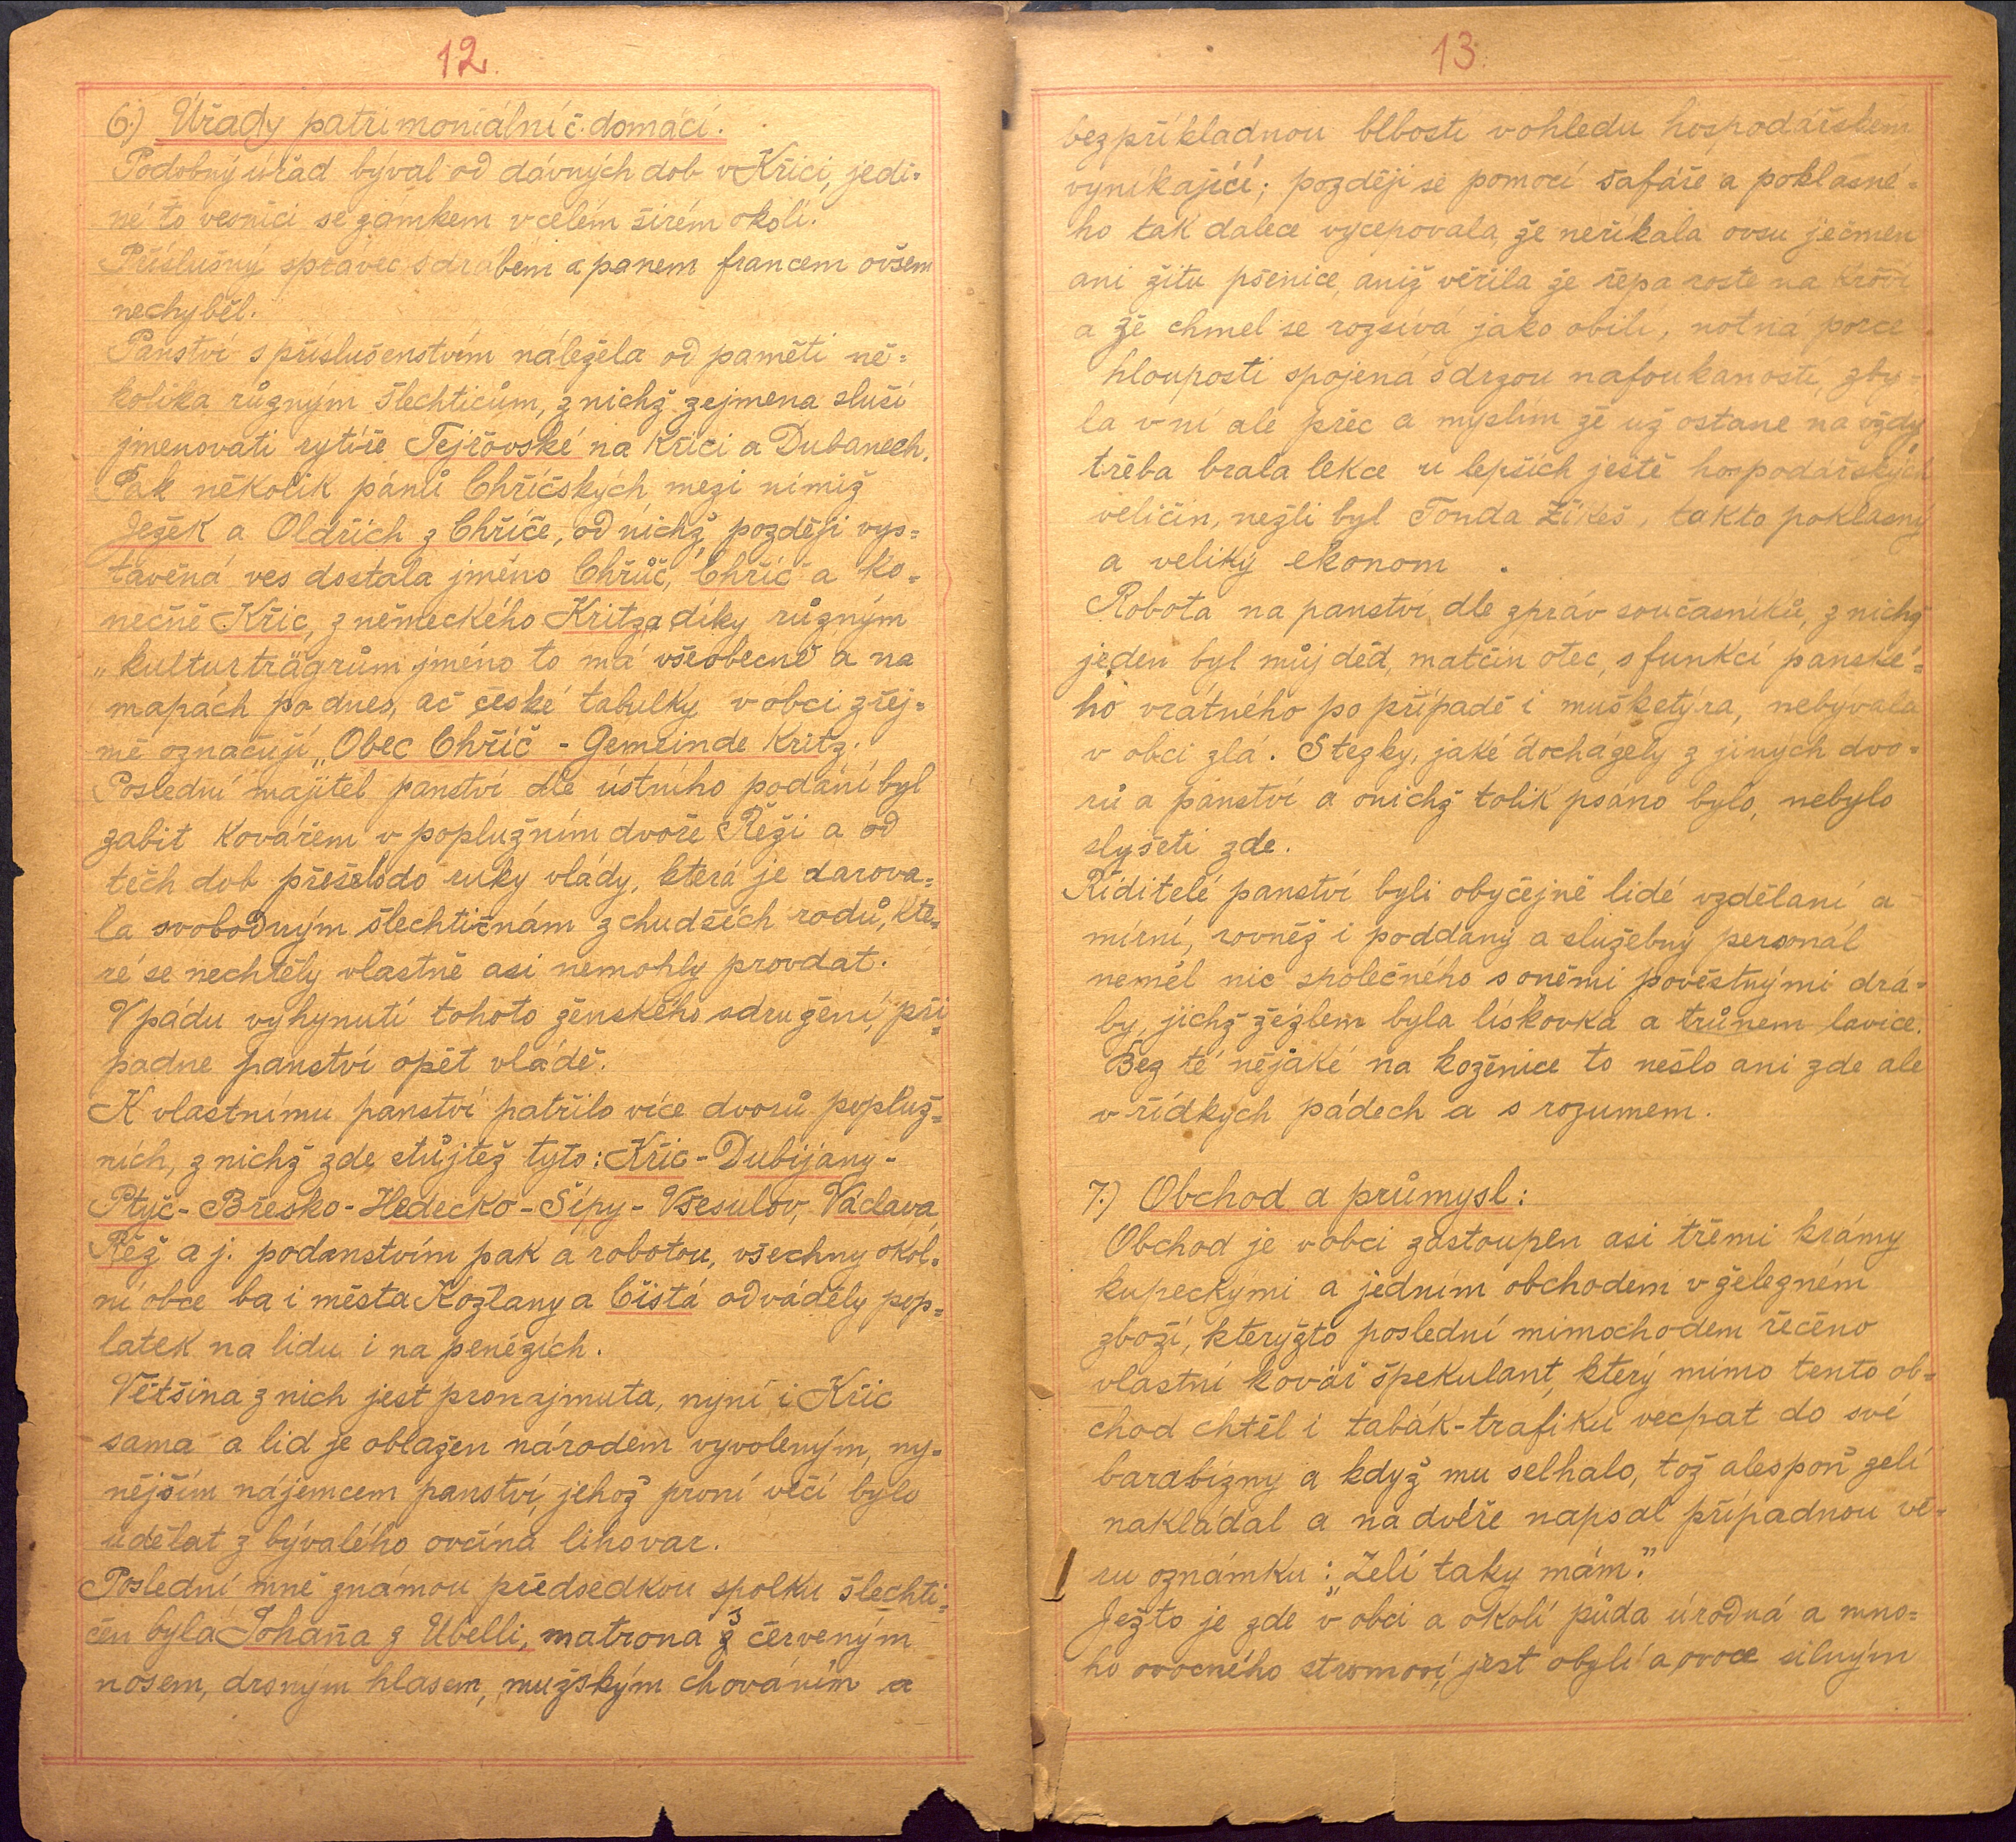 12.
6.) Úřady patrimoniální č. domácí.
Podobný úřad býval od dávných dob v Křici, jedi-
né to vesnici se zámkem v celém širém okolí.
Příslušný správec s drábem a panem francem ovšem
nechyběl.
Panství s příslušenstvím náležela od paměti ně-
kolika různým šlechticům, z nichž zejmena sluší
jmenovati rytíře Tejřovské na Křici a Dubanech.
Pak několik pánů Chříčských mezi nimiž
Ježek a Oldřich z Chříče, od nichž později vys-
tavěná ves dostala jméno Chřůč, Chříč a ko-
nečně Křic, z německého Kritz a díky různým
„kulturträgrům jméno to má všeobecně a na
mapách po dnes, ač české tabulky v obci zřej-
mě označují „Obec Chříč - Gemeinde Kritz.
Poslední majitel panství dle ústního podání byl
zabit kovářem v poplužním dvoře Řeži a od
těch dob přešelo do ruky vlády, která je darova-
la svobodným šlechtičnám z chudších rodů, kte-
ré se nechtěly vlastně asi nemohly provdat.
V pádu vyhynutí tohoto ženského sdružení, při-
padne panství opět vládě.
K vlastnímu panství patřilo více dvorů popluž-
ních, z nichž zde stůjtéž tyto: Křic - Dubijany -
Ptyč - Břesko - Hedecko - Šípy - Všesulov, Václava
Řež a j. podanstvím pak a robotou, všechny okol-
ní obce ba i města Kozlany a Čistá odváděly pop-
latek na lidu i na penězích.
Většina z nich jest pronajmuta, nyní i Křic
sama a lid je oblažen národem vyvoleným, ny-
nějším nájemcem panství, jehož první věcí bylo
udělat z bývalého ovčína lihovar.
Poslední mně známou předsedkou spolku šlechti-
čen byla Johaňa z Ubelli, matrona s červeným
nosem, drsným hlasem, mužským chováním a
13.
bezpříkladnou blbostí v ohledu hospodářském
vynikající; později se pomocí šafáře a poklasné-
ho tak dalece vycepovala, že neříkala ovsu ječmen
ani žitu pšenice, aniž věřila že řepa roste na křoví
a že chmel se rozsívá jako obilí, notná porce
hlouposti spojená s drzou nafoukaností, zby-
la v ní ale přec a myslím že už ostane na vždy
třeba brala lekce u lepších ještě hospodářských
veličin, nežli byl Tonda Žikeš, takto poklasný
a veliký ekonom.
Robota na panství, dle zpráv současníků, z nichž
jeden byl můj děd, matčin otec, s funkcí panské-
ho vrátného po případě i mušketýra, nebyvala
v obci zlá. Stezky, jaké docházely z jiných dvo-
rů a panství a o nichž tolik psáno bylo, nebylo
slyšeti zde.
Řiditelé panství byli obyčejně lidé vzdělaní a
mírní, rovněž i poddaný a služebný personál
neměl nic společného s oněmi pověstnými drá-
by, jichž žezlem byla lískovka a trůnem lavice.
Bez té nějaké na koženice to nešlo ani zde ale
v řídkých pádech a s rozumem.
7.) Obchod a průmysl:
Obchod je v obci zastoupen asi třemi krámy
kupeckými a jedním obchodem v železném
zboží, kterýžto poslední mimochodem řečeno
vlastní kovář špekulant, který mimo tento ob-
chod chtěl i tabák-trafiku vecpat do své
barabizny a když mu selhalo, tož alespoň zelí
nakládal a na dvéře napsal případnou vě-
ru oznámku: „Zelí taky mám."
Ježto je zde v obci a okolí půda úrodná a mno-
ho ovocného stromoví, jest obylí a ovoce silným